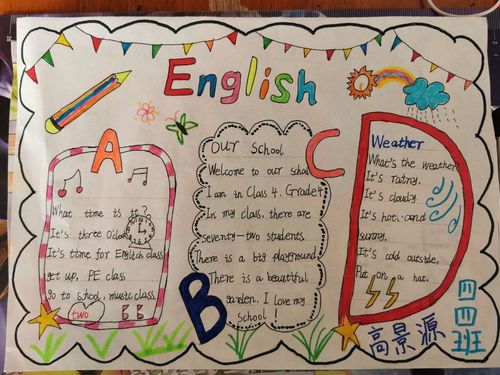 English
A
What time is it?
It's three O'clock
It's time for English class
get up, PE class
Go to school, music class.
two
B
Our School
Welcome to our school
I am in Class 4, Grade 4
In my class, there are
seventy-two students
There is a big playground
There is a beautiful
garden. I love my
school!
C
D
Weather
What's the weather
It's rainy.
It's cloudy.
It's hot, and
sunny.
It's cold outside,
Put on a hat.
高景源
四四班